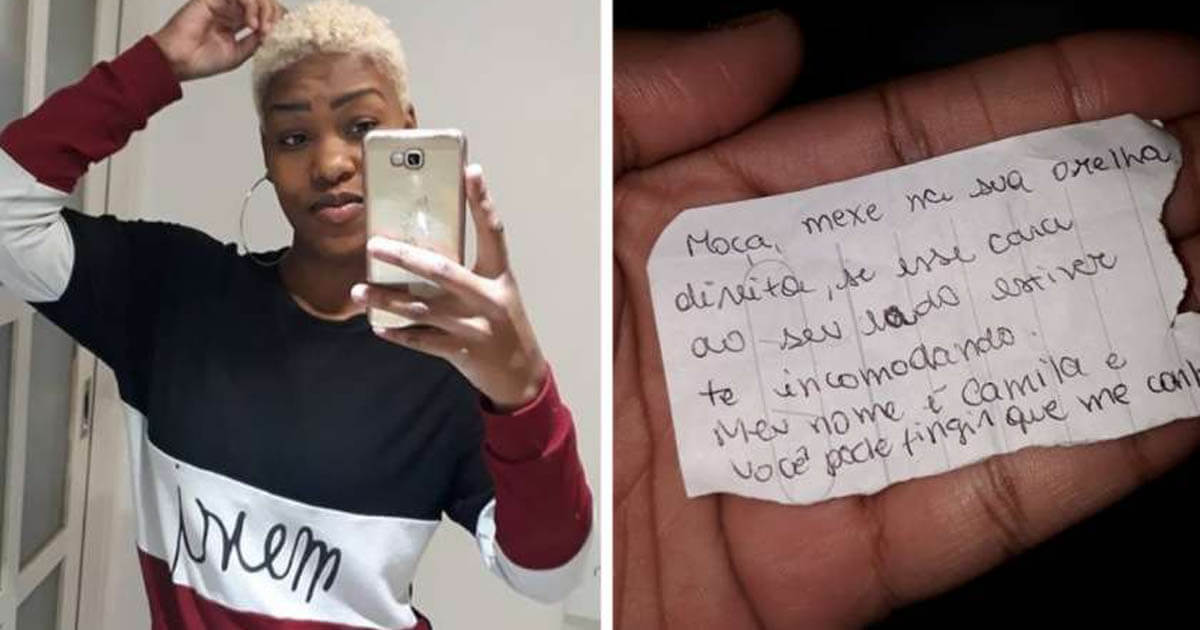 Moça, mexe na sua orelha
direita, se esse cara
ao seu lado estiver
te incomodando.
Meu nome é Camila e
você pode fingir que me conh